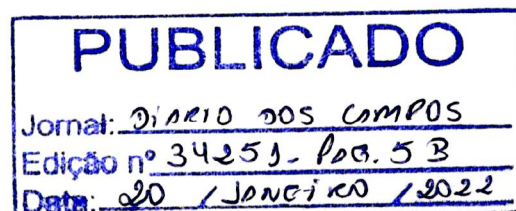 PUBLICADO
Jornal: DIARIO DOS CAMPOS
Edição nº 34251 - PAG. 5 B
Data: 20 / JANEIRO / 2022